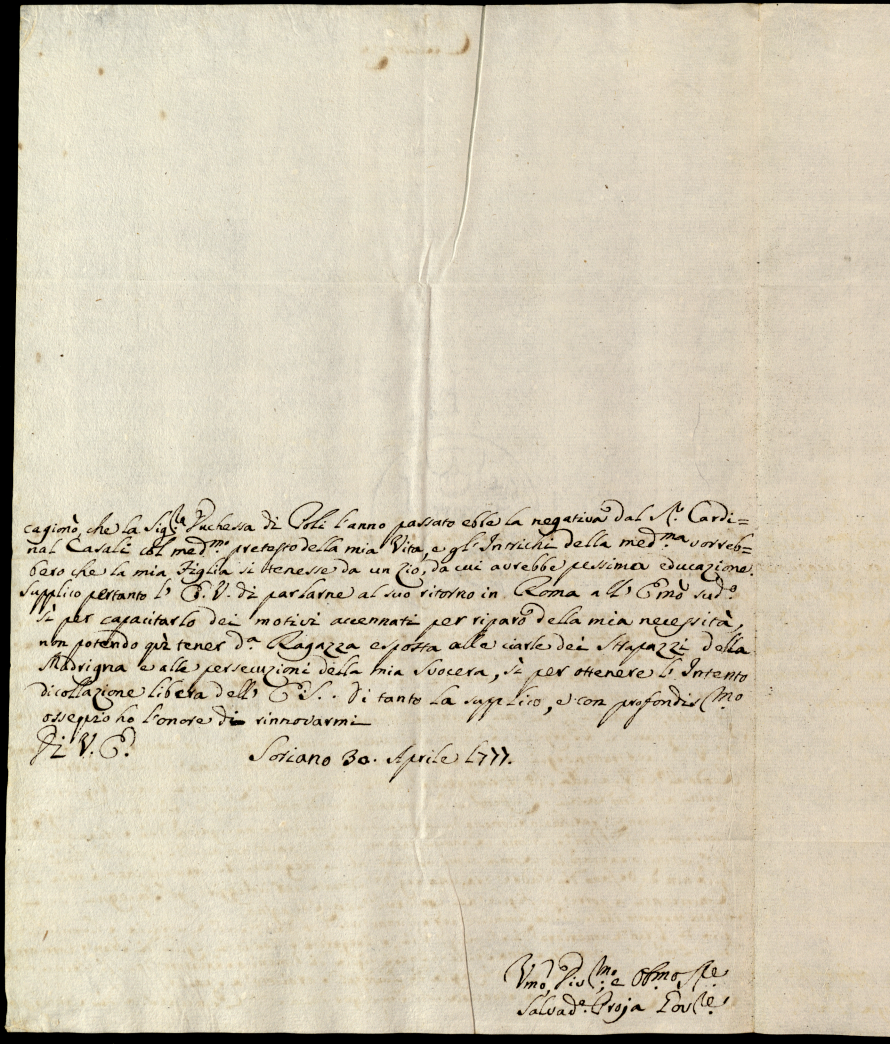 cagionò, che la Sig.ra Duchessa di Poli l'anno passato ebbe la negativa dal S.r Cardi=
nal Casali col med.mo pretesto della mia Vita, e gl'Intrichi della med.ma vorreb=
bero che la mia Figlia si tenesse da un zio, da cui avrebbe pessima educazione.
Supplico pertanto l'E. V. di parlarne al suo ritorno in Roma all'Emo sud.o
sì per capacitarlo dei motivi accennati per riparo della mia necessità,
non potendo quì tener d.a Ragazza esposta alle ciarle dei Strapazzi della
Madrigna e alle persecuzioni della mia Suocera, sì per ottenere l'Intento
di collazione libera dell' E. S.. Di tanto la supplico, e con profondis.mo
ossequio ho l'onore di rinnovarmi
Di V. E.
Soriano 30. Aprile 1777.
Umo, Div.mo, e Obmo Sre
Salvad.e Troja